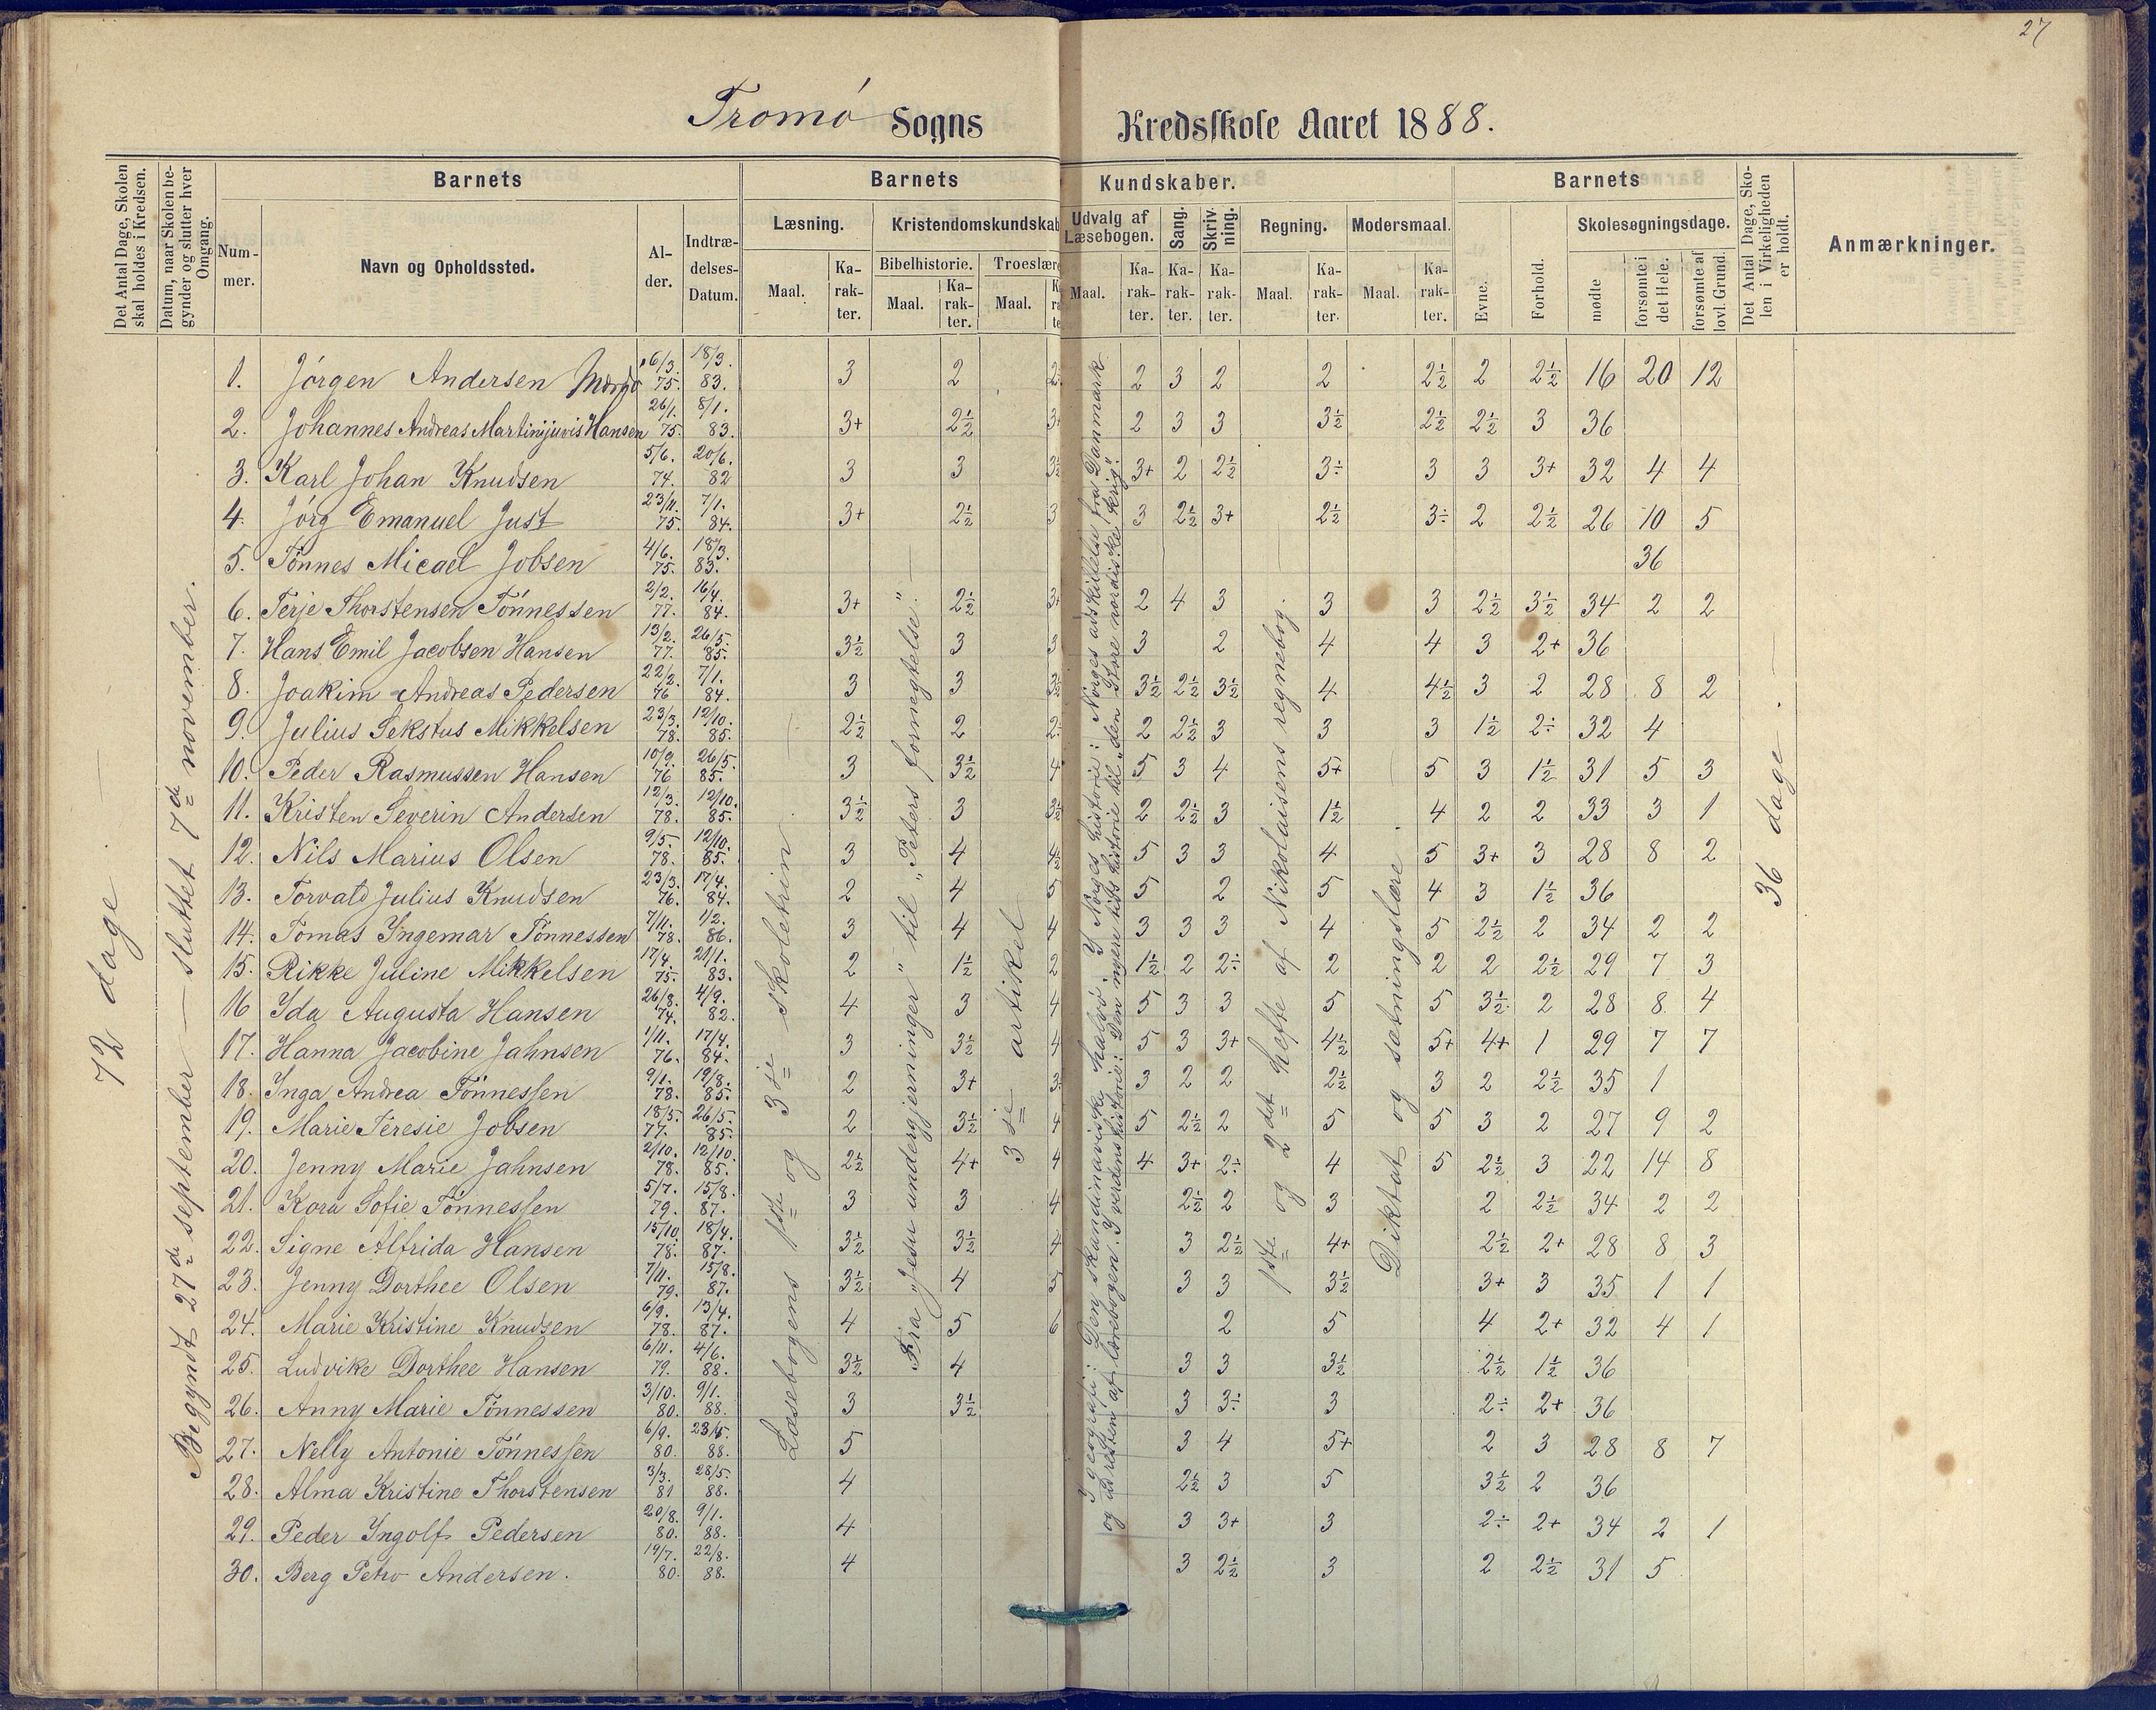 27
Tromø Sogns Kredsskole Aaret 1888.
Det Antal Dage, Skolen skal holdes i Kredsen.
Datum, naar Skolen begynder og slutter hver Omgang.
Barnets
Nummer.
Navn og Opholdssted.
Alder.
Indtrædelses-Datum.
Barnets Kundskaber.
Læsning.
Maal.
Karakter.
Kristendomskundskab
Bibelhistorie.
Maal.
Karakter.
Troeslære
Maal.
Udvalg af Læsebogen.
Maal.
Karakter.
Sang.
Karakter.
Skrivning.
Karakter.
Regning.
Maal.
Karakter.
Modersmaal.
Maal.
Karakter.
Barnets
Evne.
Forhold.
Skolesøgningsdage.
mødte
forsømte i det Hele.
forsømte af lovl. Grund.
Det Antal Dage, Skolen i Virkeligheden er holdt.
Anmærkninger.
72 dage.
Begyndt 27de september — sluttet 7de november.
Læsebogens 1ste og 3die skoletrin
Fra "Jesu undergjerninger" til "Peters fornegtelse".
3die artikel
I geografi: Den skandinaviske halvø. I Norges historie: Norges adskillelse fra Danmark
og ud resten af lærebogen. I verdenshistorie: Den nyere tids historie til "den store nordiske krig".
1ste og 2det hefte af Nikolaisens regnebog.
Diktat og sætningslære.
36 dage.
1. Jörgen Andersen 6/3. 75. 18/3. 83. 3 2 2 2 3 2 2 2½ 2 2½ 16 20 12
2. Johannes Andreas Martinijuvis Hansen 26/1. 75. 8/1. 83. 3+ 2½ 3+ 2 3 3 3½ 2½ 2½ 3 36
3. Karl Johan Knudsen 5/6. 74. 20/6. 82 3 3 3½ 3+ 2 2½ 3÷ 3 3 3+ 32 4 4
4. Jörg Emanuel Just 23/11. 75. 7/1. 84. 3+ 2½ 3 3 2½ 3+ 2½ 3÷ 2 2½ 26 10 5
5. Tönnes Micael Jobsen 4/6. 75. 18/3. 83. 36
6. Terje Thorstensen Tönnessen 2/2. 77. 16/4. 84. 3+ 2½ 3+ 2 4 3 3 3 2½ 3½ 34 2 2
7. Hans Emil Jacobsen Hansen 13/2. 77. 26/5. 85. 3½ 3 3 3 2 4 4 3 2+ 36
8. Joakim Andreas Pedersen 22/2. 76 7/1. 84. 3 3 3½ 3½ 2½ 3½ 4 4½ 3 2 28 8 2
9. Julius Sekstus Mikkelsen 23/3. 78. 12/10. 85. 2½ 2 2÷ 2 2½ 3 3 3 1½ 2÷ 32 4
10. Peder Rasmussen Hansen 10/9. 76 26/5. 85. 3 3½ 4 5 3 4 5+ 5 3 1½ 31 5 3
11. Kristen Severin Andersen 12/3. 78. 12/10. 85. 3½ 3 3½ 2 2½ 3 1½ 4 2 2 33 3 1
12. Nils Marius Olsen 9/5. 78. 12/10. 85. 3 4 4½ 5 3 3 4 5 3+ 3 28 8 2
13. Torvald Julius Knudsen 23/3. 76. 17/4. 84. 2 4 5 5 2 5 4 3 1½ 36
14. Tomas Yngemar Tönnessen 7/11. 78. 1/2. 86. 3 4 4 3 3 3 4 5 2½ 2 34 2 2
15. Rikke Juline Mikkelsen 17/4. 75. 21/1. 83. 2 1½ 2 1½ 2 2÷ 2 2 2 2½ 29 7 3
16 Ida Augusta Hansen 26/8. 74. 4/9. 82. 4 3 4 5 3 3 5 5 3½ 2 28 8 4
17. Hanna Jacobine Jahnsen 1/11. 76. 17/4. 84. 3 3½ 4 5 3 3+ 4½ 5+ 4+ 1 29 7 7
18. Inga Andrea Tönnessen 9/1. 78. 19/8. 85. 2 3+ 3 3 2 2 2½ 3 2 2½ 35 1
19. Marie Teresie Jobsen 18/5. 77. 26/5. 85. 2 3½ 4 5 2½ 2 5 5 3 2 27 9 2
20. Jenny Marie Jahnsen 2/10. 78. 12/10. 85. 2½ 4+ 4 4 3+ 2÷ 4 5 2½ 3 22 14 8
21. Kora Sofie Tönnessen 5/7. 79. 15/8. 87. 3 3 4 2½ 2 3 2 2½ 34 2 2
22. Signe Alfrida Hansen 15/10. 78. 18/4. 87. 3½ 3½ 4 3 2½ 4+ 2½ 2+ 28 8 3
23. Jenny Dorthee Olsen 7/11. 79. 15/8. 87. 3½ 4 3 3 3½ 3+ 3 35 1 1
24. Marie Kristine Knudsen 6/9. 78. 13/4. 87. 4 5 6 2 5 4 2+ 32 4 1
25. Ludvike Dorthee Hansen 6/11. 79. 4/6. 88. 3½ 4 3 3 3½ 2½ 1½ 36
26. Anny Marie Tönnessen 3/10. 80. 9/1. 88. 3 3½ 3 3÷ 3 2÷ 2+ 36
27. Nelly Antonie Tönnessen 6/9. 80. 23/5. 88. 5 3 4 5+ 2 3 28 8 7
28. Alma Kristine Thorstensen 3/3. 81 28/5. 88. 4 2½ 3 5 3½ 2 36
29. Peder Yngolf Pedersen 20/8. 80. 9/1. 88. 4 3 3+ 3 2÷ 2+ 34 2 1
30. Berg Petro Andersen. 19/7. 80. 22/8. 88. 4 3 2½ 3 2 2½ 31 5